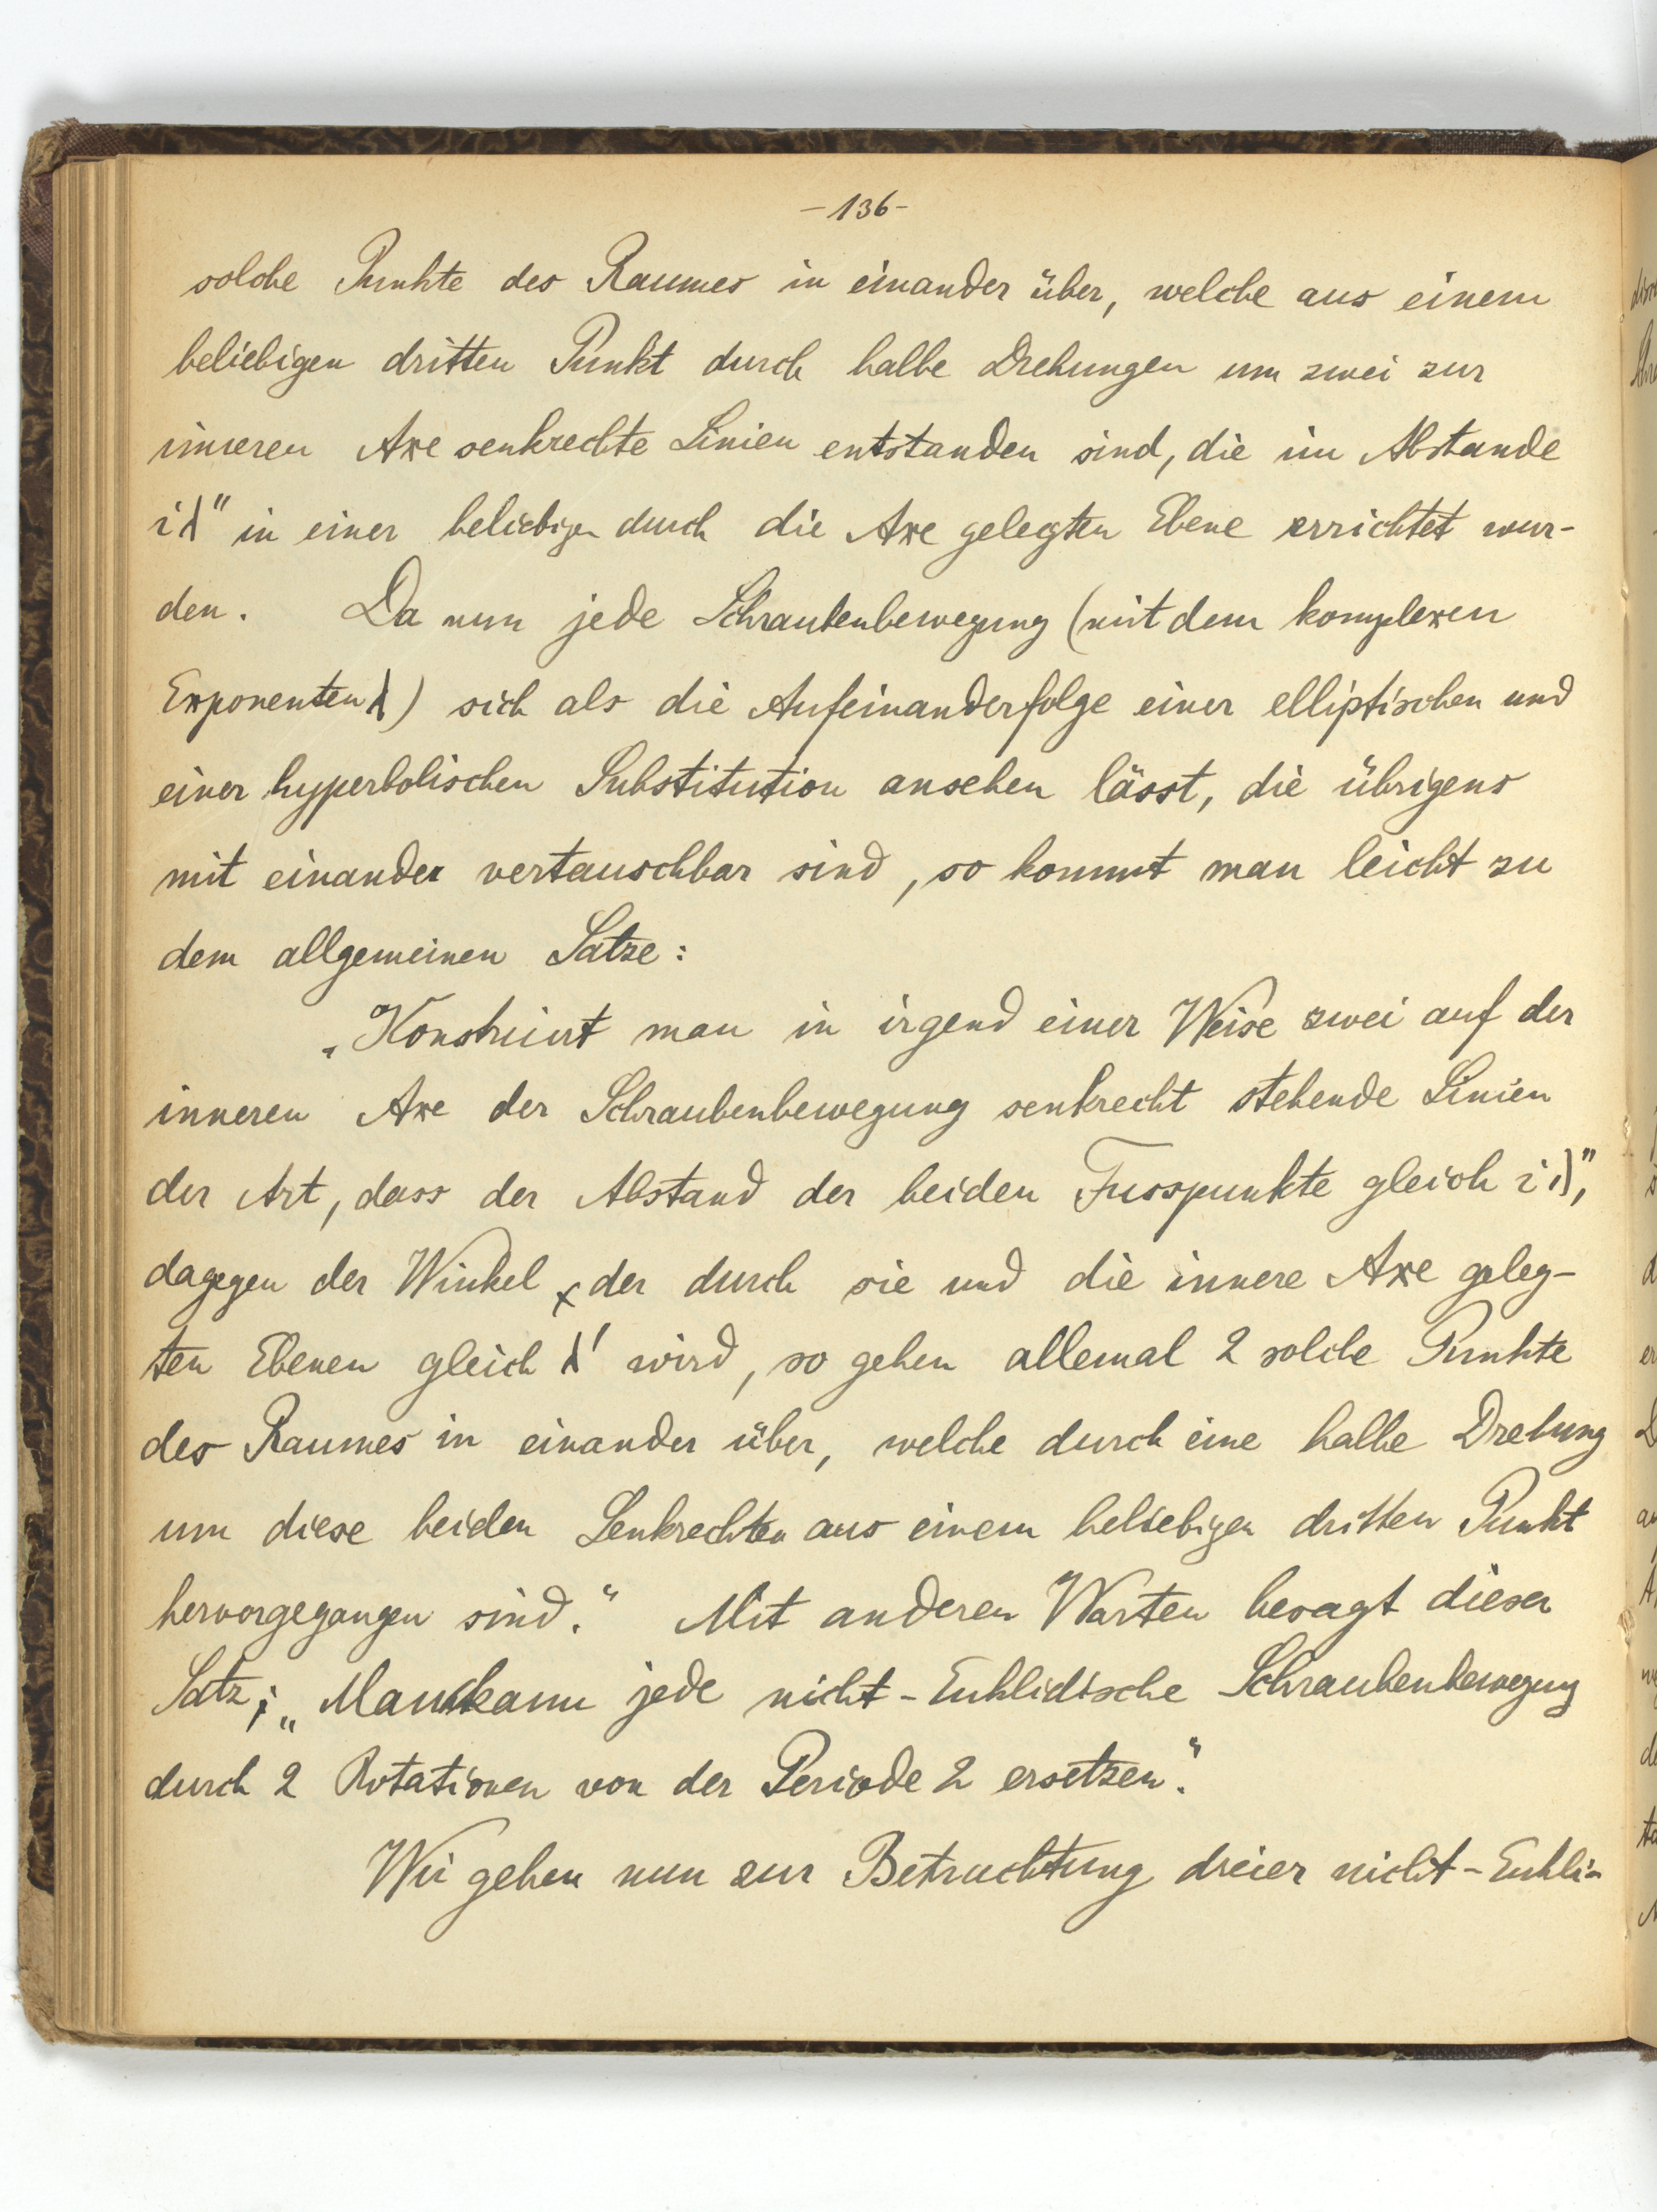 -136-
solche Punkte des Raumes in einander über, welche aus einem
beliebigen dritten Punkt durch halbe Drehungen um zwei zur
inneren Axe senkrechte Linien entstanden sind, die im Abstande
iλ" in einer beliebigen durch die Axe gelegten Ebene errichtet wur-
den. Da nun jede Schraubenbewegung (mit dem komplexen
Exponenten λ) sich als die Aufeinanderfolge einer elliptischen und
einer hyperbolischen Substitution ansehen lässt, die übrigens
mit einander vertauschbar sind, so kommt man leicht zu
dem allgemeinen Satze:
„Konstruirt man in irgend einer Weise zwei auf der
inneren Axe der Schraubenbewegung senkrecht stehende Linien
der Art, dass der Abstand der beiden Fusspunkte gleich iλ",
dagegen der Winkel der durch sie und die innere Axe geleg-
ten Ebenen gleich λ' wird, so gehen allemal 2 solche Punkte
des Raumes in einander über, welche durch eine halbe Drehung
um diese beiden Senkrechten aus einem beliebigen dritten Punkt
hervorgegangen sind." Mit anderen Worten besagt dieser
Satz: „Man kann jede nicht-Euklidische Schraubenbewegung
durch 2 Rotationen von der Periode 2 ersetzen."
Wir gehen nun zur Betrachtung dreier nicht-Eukli-